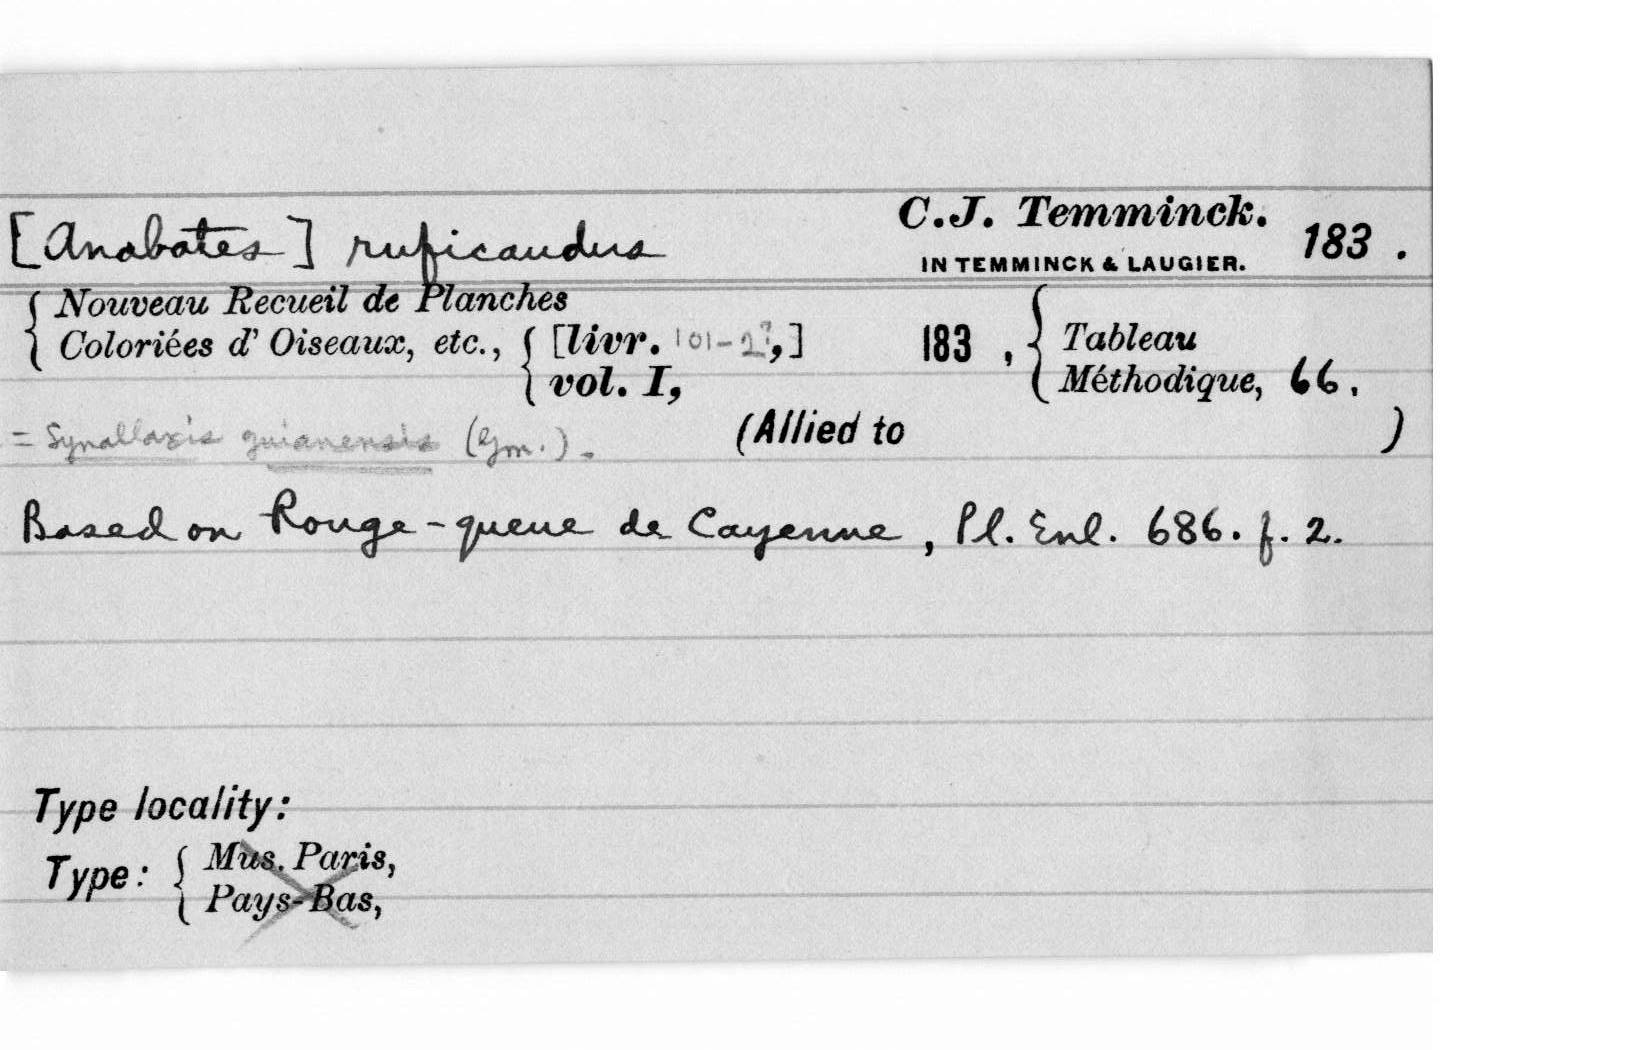 [Anabates] ruficaudus C.J. Temminck. 183 .
IN TEMMINCK & LAUGIER.
Nouveau Recueil de Planches
Coloriées d' Oiseaux, etc., [livr. 101-2?,] 183 , Tableau
vol. I, Méthodique, 66.
= Synallaxis guianensis (Gm.). (Allied to )
Based on Rouge-queue de Cayenne, Pl. Enl. 686. f. 2.
Type locality:
Type: Mus. Paris,
Pays-Bas,